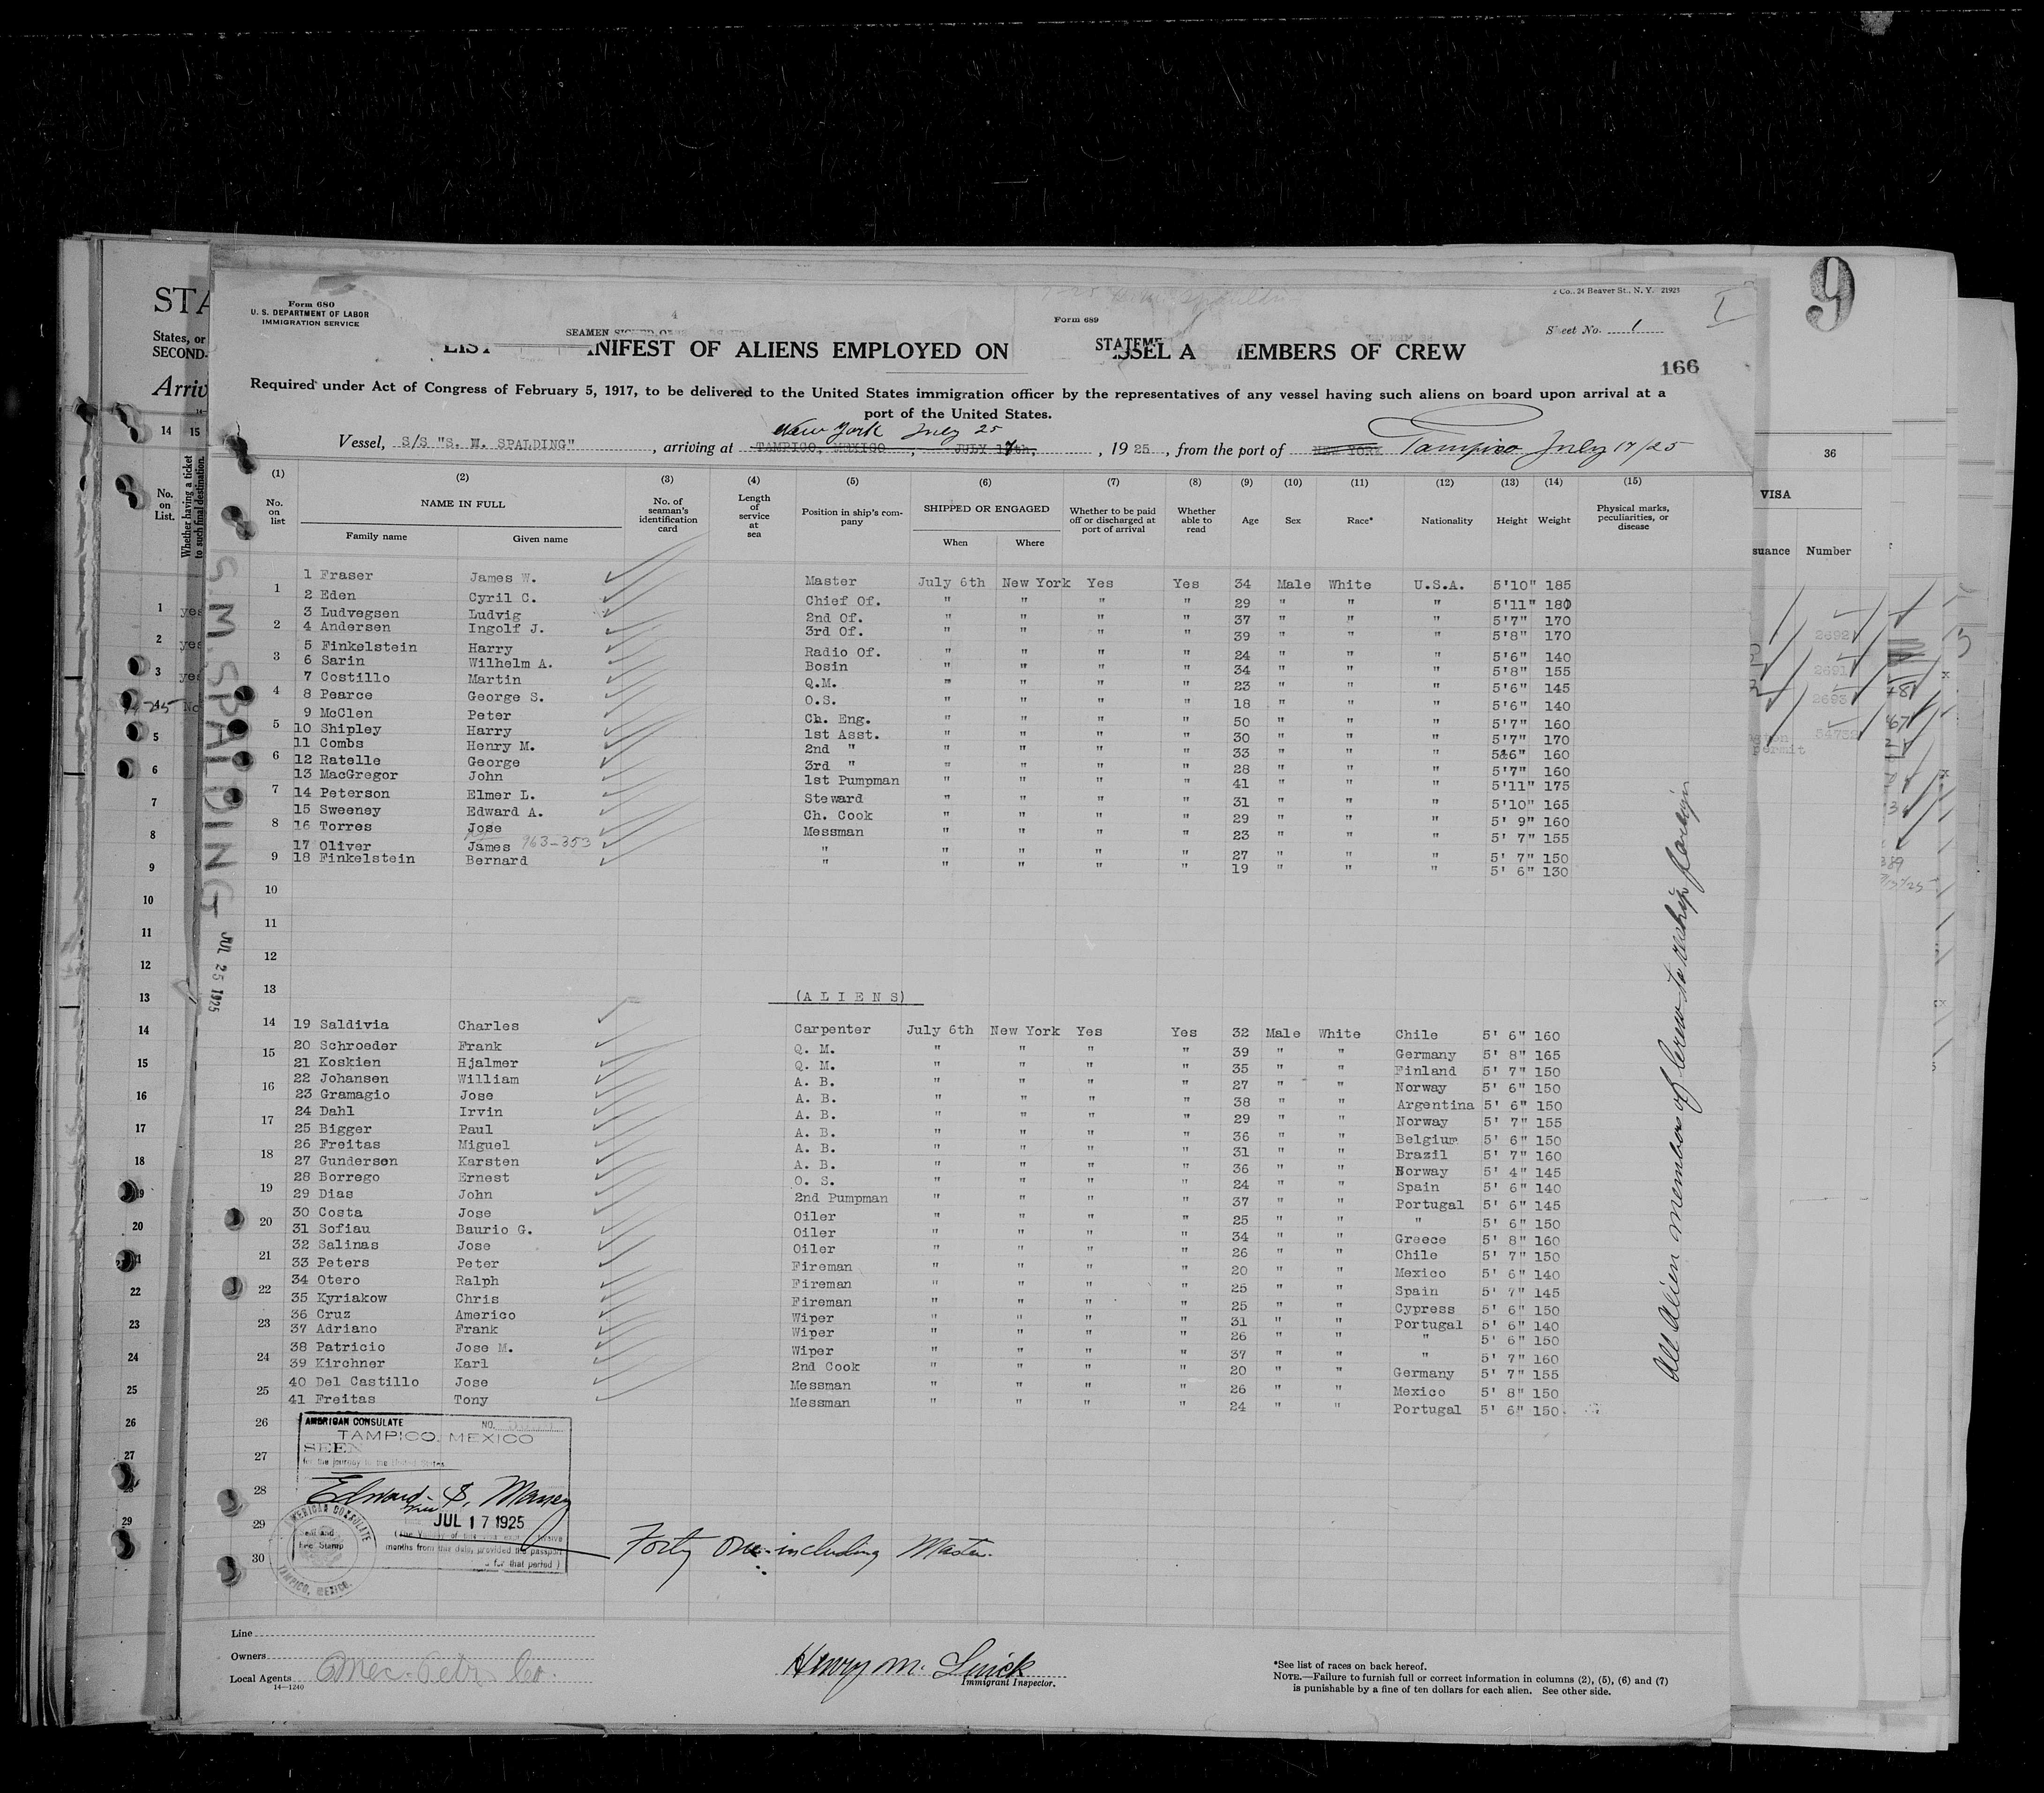 Form 680
U. S. DEPARTMENT OF LABOR
IMMIGRATION SERVICE
SEAMEN
Form 689
Co., 24 Beaver St., N. Y. 21923
Sheet No. 1
I
9
LIST MANIFEST OF ALIENS EMPLOYED ON STATEME SSEL A MEMBERS OF CREW
166
Required under Act of Congress of February 5, 1917, to be delivered to the United States immigration officer by the representatives of any vessel having such aliens on board upon arrival at a
port of the United States.
New York July 25
Vessel, S/S "S. M. SPALDING", arriving at TAMPICO, MEXICO, JULY 17th, 1925, from the port of NEW YORK Tampico July 17/25
(1) (2) (3) (4) (5) (6) (7) (8) (9) (10) (11) (12) (13) (14) (15)
No. on list NAME IN FULL Family name Given name No. of seaman's identification card Length of service at sea Position in ship's company SHIPPED OR ENGAGED When Where Whether to be paid off or discharged at port of arrival Whether able to read Age Sex Race* Nationality Height Weight Physical marks, peculiarities, or disease
1 Fraser James W. Master July 6th New York Yes Yes 34 Male White U.S.A. 5'10" 185
2 Eden Cyril C. Chief Of. " " " " 29 " " " 5'11" 180
3 Ludvegsen Ludvig 2nd Of. " " " " 37 " " " 5'7" 170
4 Andersen Ingolf J. 3rd Of. " " " " 39 " " " 5'8" 170
5 Finkelstein Harry Radio Of. " " " " 24 " " " 5'6" 140
6 Sarin Wilhelm A. Bosin " " " " 34 " " " 5'8" 155
7 Costillo Martin Q.M. " " " " 23 " " " 5'6" 145
8 Pearce George S. O.S. " " " " 18 " " " 5'6" 140
9 McClen Peter Ch. Eng. " " " " 50 " " " 5'7" 160
10 Shipley Harry 1st Asst. " " " " 30 " " " 5'7" 170
11 Combs Henry M. 2nd " " " " " 33 " " " 5'6" 160
12 Ratelle George 3rd " " " " " 28 " " " 5'7" 160
13 MacGregor John 1st Pumpman " " " " 41 " " " 5'11" 175
14 Peterson Elmer L. Steward " " " " 31 " " " 5'10" 165
15 Sweeney Edward A. Ch. Cook " " " " 29 " " " 5' 9" 160
16 Torres Jose Messman " " " " 23 " " " 5' 7" 155
17 Oliver James 963-353 " " " " " 27 " " " 5' 7" 150
18 Finkelstein Bernard " " " " " 19 " " " 5' 6" 130
(A L I E N S)
19 Saldivia Charles Carpenter July 6th New York Yes Yes 32 Male White Chile 5' 6" 160
20 Schroeder Frank Q. M. " " " " 39 " " Germany 5' 8" 165
21 Koskien Hjalmer Q. M. " " " " 35 " " Finland 5' 7" 150
22 Johansen William A. B. " " " " 27 " " Norway 5' 6" 150
23 Gramagio Jose A. B. " " " " 38 " " Argentina 5' 6" 150
24 Dahl Irvin A. B. " " " " 29 " " Norway 5' 7" 155
25 Bigger Paul A. B. " " " " 36 " " Belgium 5' 6" 150
26 Freitas Miguel A. B. " " " " 31 " " Brazil 5' 7" 160
27 Gundersen Karsten A. B. " " " " 36 " " Norway 5' 4" 145
28 Borrego Ernest O. S. " " " " 24 " " Spain 5' 6" 140
29 Dias John 2nd Pumpman " " " " 37 " " Portugal 5' 6" 145
30 Costa Jose Oiler " " " " 25 " " " 5' 6" 150
31 Sofiau Baurio G. Oiler " " " " 34 " " Greece 5' 8" 160
32 Salinas Jose Oiler " " " " 26 " " Chile 5' 7" 150
33 Peters Peter Fireman " " " " 20 " " Mexico 5' 6" 140
34 Otero Ralph Fireman " " " " 25 " " Spain 5' 7" 145
35 Kyriakow Chris Fireman " " " " 25 " " Cypress 5' 6" 150
36 Cruz Americo Wiper " " " " 31 " " Portugal 5' 6" 140
37 Adriano Frank Wiper " " " " 26 " " " 5' 6" 150
38 Patricio Jose M. Wiper " " " " 37 " " " 5' 7" 160
39 Kirchner Karl 2nd Cook " " " " 20 " " Germany 5' 7" 155
40 Del Castillo Jose Messman " " " " 26 " " Mexico 5' 8" 150
41 Freitas Tony Messman " " " " 24 " " Portugal 5' 6" 150
S.M. SPALDING JUL 25 1925
All alien members of crew to reship foreign
AMERICAN CONSULATE NO.
TAMPICO, MEXICO
SEEN
for the journey to the United States
Edward S. Maney
JUL 17 1925
months from this date, provided the passport
for that period)
AMERICAN CONSULATE
Seal and
Fee Stamp
TAMPICO, MEXICO.
Forty One including Master.
Line
Owners
Local Agents Mex. Petr. Co.
14—1240
Henry M.
Immigrant Inspector.
*See list of races on back hereof.
NOTE.—Failure to furnish full or correct information in columns (2), (5), (6) and (7)
is punishable by a fine of ten dollars for each alien. See other side.
STA
States, or
SECOND-
Arriv
14 15
No. on List.
Whether having a ticket to such final destination.
36
VISA
suance Number
2692
2691
2693
54732
permit